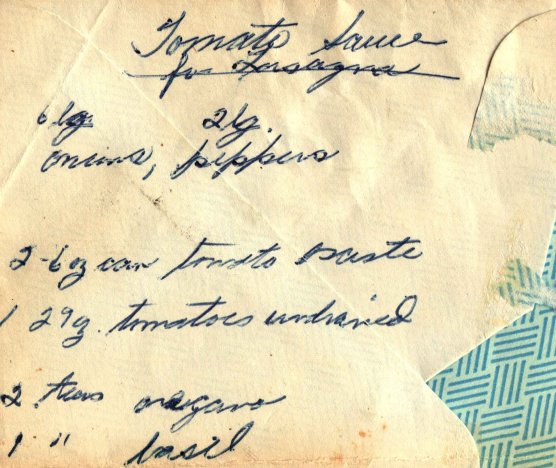 Tomato Sauce
for Lasagna
6 lg 2 lg.
onions, peppers
2-6 oz can tomato paste
1 29 oz. tomatoes undrained
2 teas oregano
1 " basil